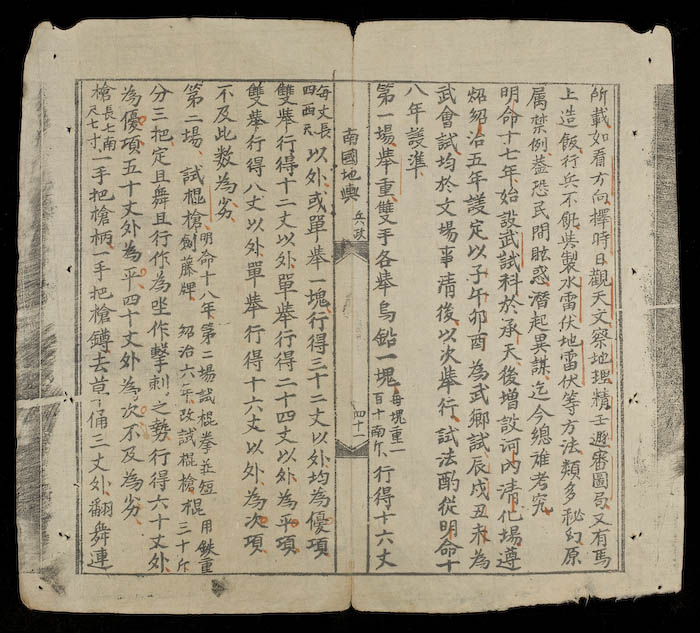 所載如看方向擇時日觀天文察地理精壬遯審圖局又有馬
上造飯行兵不飢與製水雷伏地雷伏等方法類多秘幻原
属禁例蓋恐民間眩惑潛起異謀迄今總难考究
明命十七年始設武試科於承天後增設河内清化場遵
炤紹治五年議定以子午卯酉為武鄉試辰戌丑未為
武會試均於文場事清後以次舉行試法酌從明命十
八年議準
第一場舉重雙手各舉烏鉛一塊每塊重一百十南斤行得十六丈
南國地輿 兵政 四十一
每丈長四西尺以外或單舉一塊行得三十二丈以外均為優項
雙舉行得十二丈以外單舉行得二十四丈以外為平項
雙舉行得八丈以外單舉行得十六丈以外為次項
不及此数為劣
第二場試棍槍劍藤牌明命十八年第二場試棍拳並短 紹治六年改試棍槍棍用鉄重三十斤
分三把定且舞且行作為坐作擊刺之勢行得六十丈外
為優項五十丈外為平四十丈外為次不及為劣
槍長七南尺七寸一手把槍柄一手把槍鐏去藁俑三丈外翻舞連